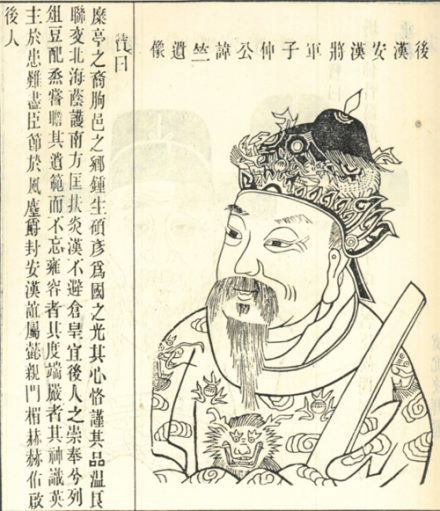 後漢安漢將軍子仲公諱竺遺像
曰
糜亭之裔朐邑之鄉鍾生碩彥爲國之光其心恪謹其品溫良
聯交北海蔭護南方匡扶炎漢不避倉皇宜後人之崇奉兮列
俎豆配烝嘗瞻其遺範而不忘雍容者其度端嚴者其神識英
主於患難盡臣節於風塵爵封安漢誼屬懿親門楣赫赫佑啟
後人